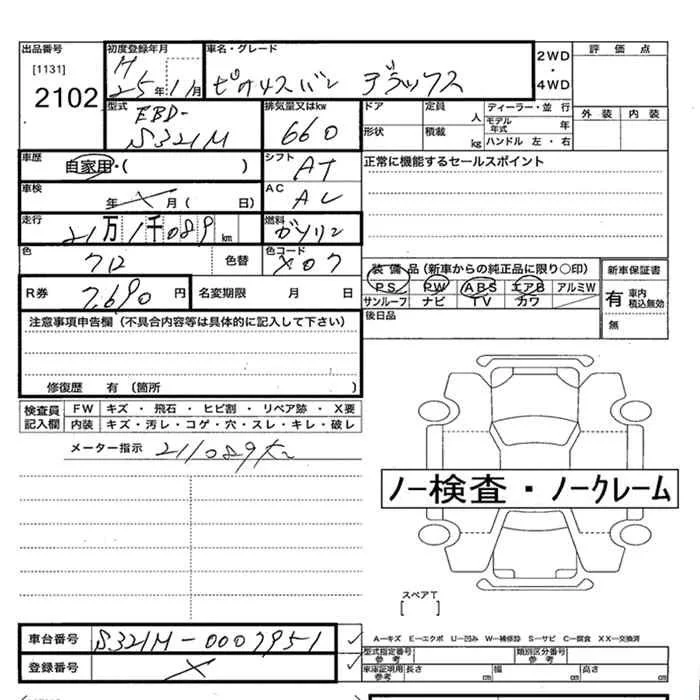 出品番号 初度登録年月 車名・グレード 2WD ・ 4WD 評価点
[1131] H
2102 25年1月 ピクシスバン デラックス
外装 内装
型式 EBD-S321M 排気量又はkw 660 ドア 定員 人 ディーラー・並行
モデル年式 年
形状 積載 kg ハンドル 左・右
車歴 自家用・( ) シフト AT 正常に機能するセールスポイント
車検 年 × 月( 日) AC AC
走行 21万1千089km 燃料 ガソリン
色 クロ 色替 色コード X07
装備品(新車からの純正品に限り○印) 新車保証書
R券 7,690円 名変期限 月 日 PS PW ABS エアB アルミW 有 車内 積込無効
サンルーフ ナビ TV カワ
注意事項申告欄(不具合内容等は具体的に記入して下さい) 後日品 無
修復歴 有(箇所 )
検査員記入欄 FW キズ・飛石・ヒビ割・リペア跡・X要
内装 キズ・汚レ・コゲ・穴・スレ・キレ・破レ
メーター指示 211089
ノー検査・ノークレーム
スペアT
[ ]
車台番号 S321M-0007951 A−キズ E−エクボ U−凹み W−補修跡 S−サビ C−腐食 XX−交換済
型式指定番号 参考 類別区分番号 参考
登録番号 × 車庫証明用 参考 長さ cm 幅 cm 高さ cm